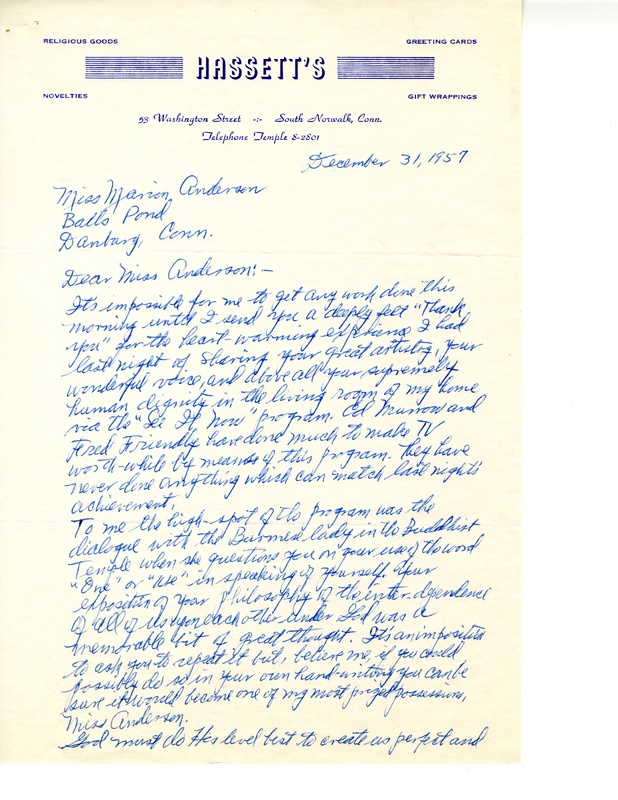 RELIGIOUS GOODS
GREETING CARDS
HASSETT'S
NOVELTIES
GIFT WRAPPINGS
53 Washington Street -:- South Norwalk, Conn.
Telephone Temple 8-2801
December 31, 1957
Miss Marion Anderson
Balls Pond
Danbury, Conn.
Dear Miss Anderson:-
It's impossible for me to get any work done this
morning until I send you a deeply felt "Thank
you" for the heart-warming experience I had
last night of sharing your great artistry, your
wonderful voice, and above all your supremely
human dignity in the living room of my home
via the "See It Now" program. Ed Murrow and
Fred Friendly have done much to make TV
worth-while by means of this program. They have
never done anything which can match last night's
achievement.
To me the high-spot of the program was the
dialogue with the Burmese lady in the Buddhist
Temple when she questions you on your use of the word
"One" or "we" in speaking of yourself. Your
exposition of your philosophy of the inter-dependence
of all of us upon each other under God was a
memorable bit of great thought. It's an imposition
to ask you to repeat it but, believe me, if you could
possibly do so in your own hand-writing you can be
sure it would become one of my most prized possessions,
Miss Anderson.
God must do His level best to create us perfect and